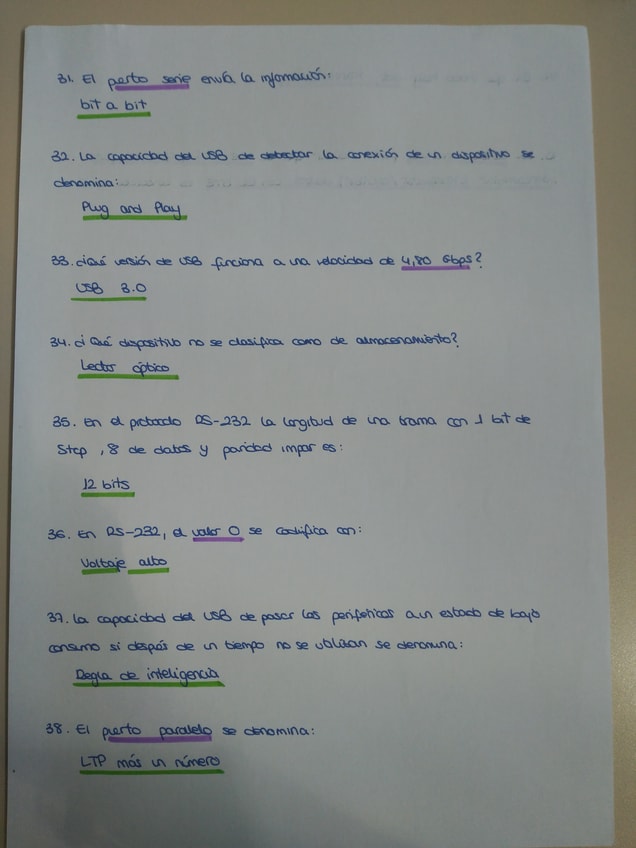 31. El puerto serie envía la información:
bit a bit
32. La capacidad del USB de detectar la conexión de un dispositivo se
denomina:
Plug and Play
33. ¿Qué versión de USB funciona a una velocidad de 4,80 Gbps?
USB 3.0
34. ¿Qué dispositivo no se clasifica como de almacenamiento?
Lector óptico
35. En el protocolo RS-232 la longitud de una trama con 1 bit de
Stop, 8 de datos y paridad impar es:
12 bits
36. En RS-232, el valor 0 se codifica con:
Voltaje alto
37. La capacidad del USB de pasar los periféricos a un estado de bajo
consumo si después de un tiempo no se utilizan se denomina:
Regla de inteligencia
38. El puerto paralelo se denomina:
LTP más un número